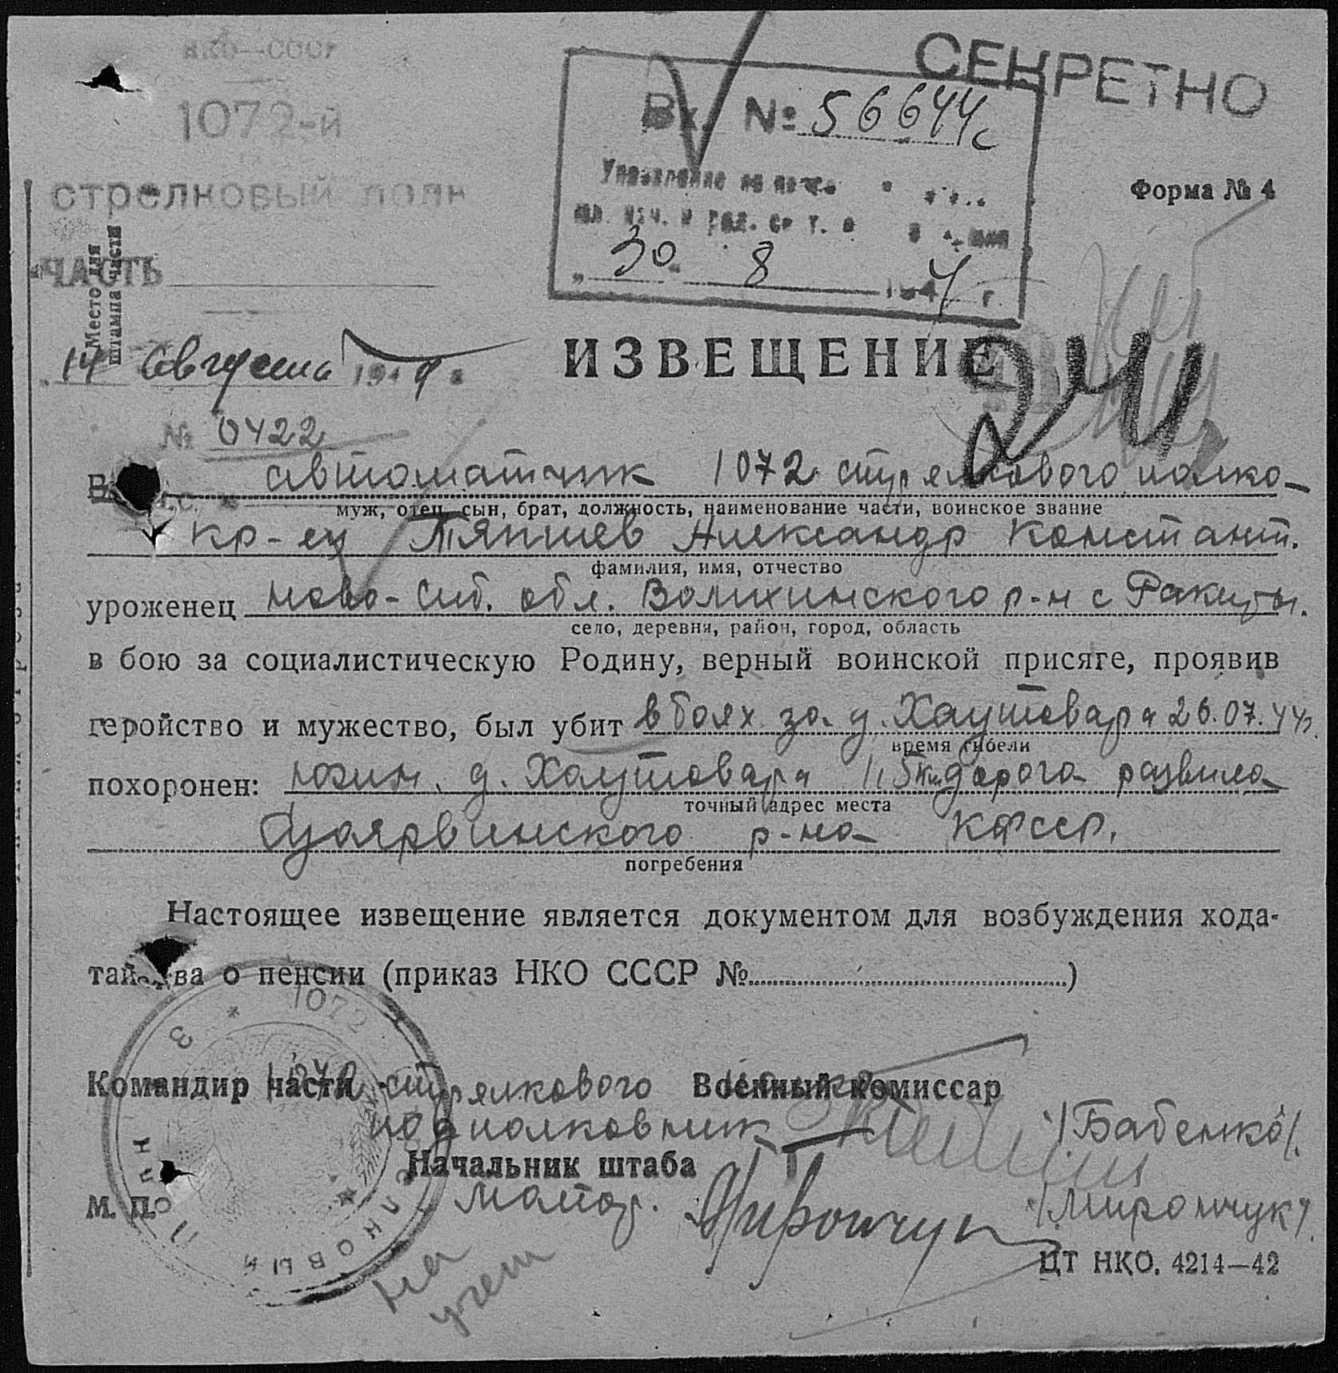 НКО—СССР
1072-й
стрелковый полк
ЧАСТЬ
Место для
штампа части
СЕКРЕТНО
Вх. № 56644с
Управление по
30 8 1944 г.
Форма № 4
14 августа 1944 г.
ИЗВЕЩЕНИЕ
24
№ 0422
автоматчик 1072 стрелкового полка
муж, отец, сын, брат, должность, наименование части, воинское звание
кр-ец Тяпшев Александр Констант.
фамилия, имя, отчество
уроженец Ново-Сиб. обл. Волчихинского р-н с Ракиты.
село, деревня, район, город, область
в бою за социалистическую Родину, верный воинской присяге, проявив
геройство и мужество, был убит в боях за д. Хаутовара 26.07.44г.
время гибели
похоронен: д. Хаутовара 1,5 км дорога развилка
точный адрес места
р-на КФССР.
погребения
Настоящее извещение является документом для возбуждения хода-
тайства о пенсии (приказ НКО СССР № )
Командир части 1072 стрелкового Военный комиссар
подполковник /Бабенко/.
Начальник штаба
М. П. майор. Мирончук /Мирончук/.
1072 СТРЕЛКОВЫЙ ПОЛК
на
учет
ЦТ НКО. 4214—42